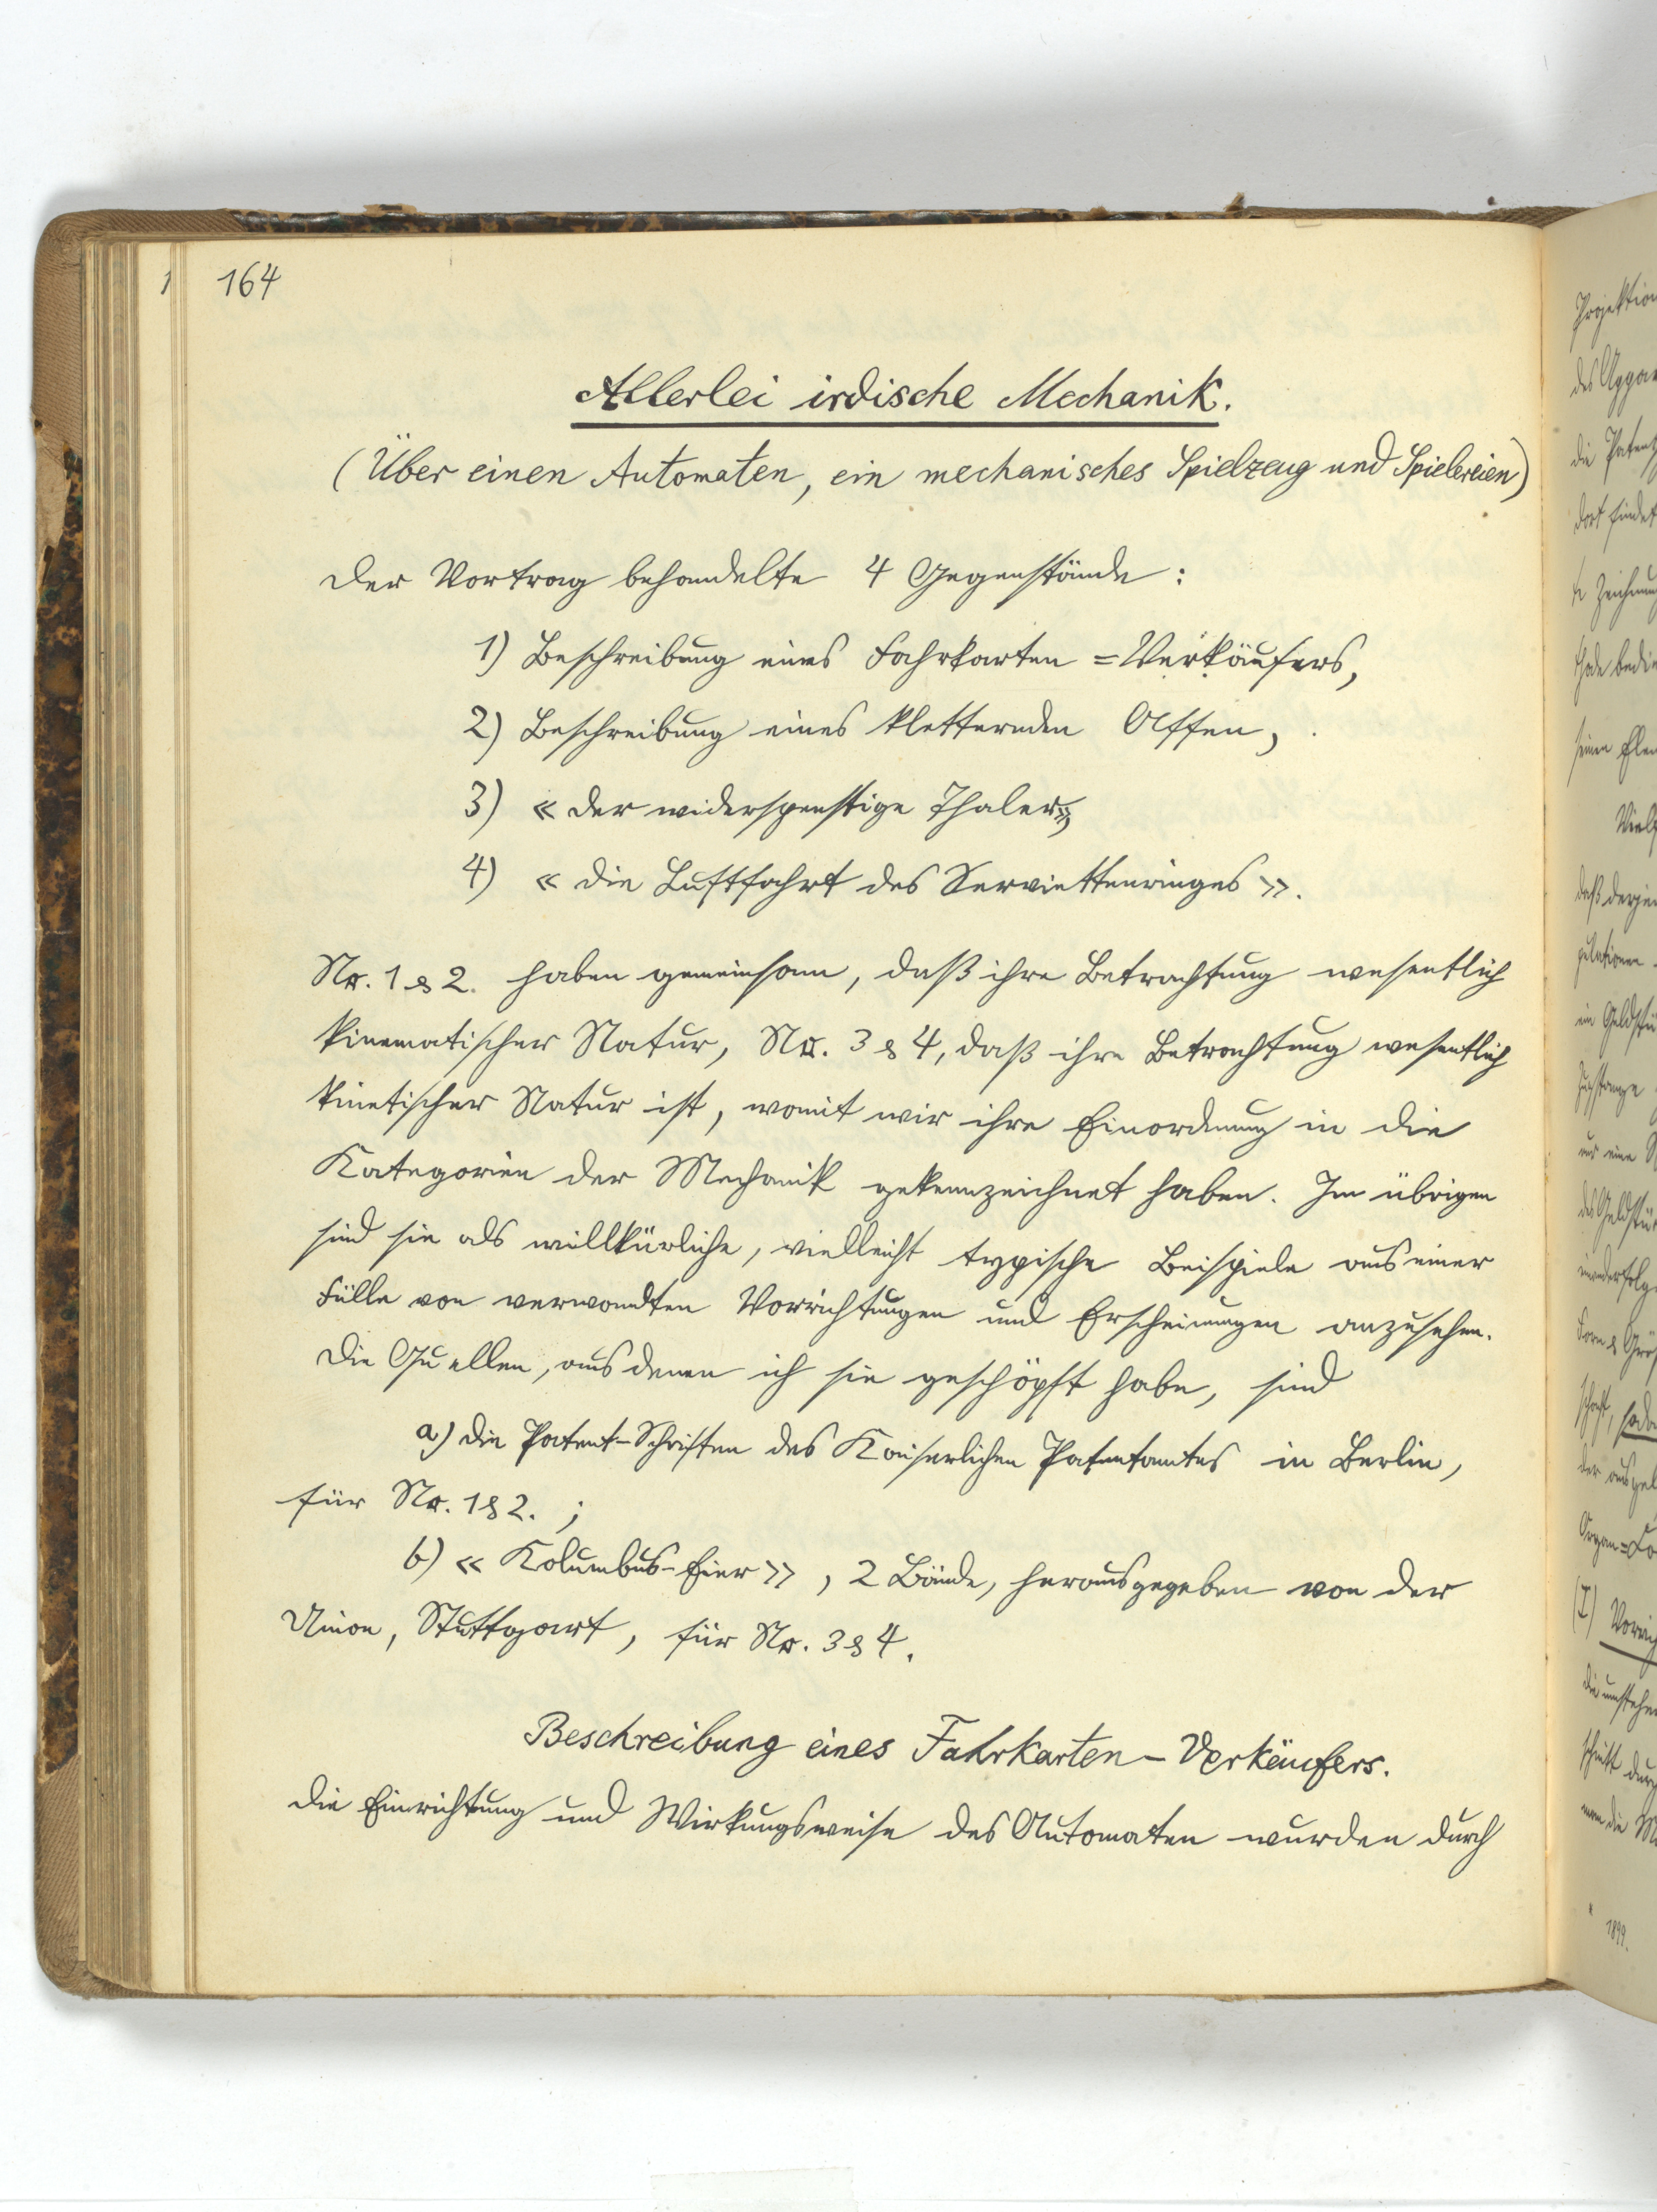 164
Allerlei irdische Mechanik.
(Über einen Automaten, ein mechanisches Spielzeug und Spielereien)
Der Vortrag behandelte 4 Gegenstände:
1) Beschreibung eines Fahrkarten=Verkäufers,
2) Beschreibung eines kletternden Affen,
3) « Der widerspenstige Thaler»,
4) « Die Luftfahrt des Serviettenringes ».
No. 1 & 2. haben gemeinsam, daß ihre Betrachtung wesentlich
kinematischer Natur, No. 3 & 4, daß ihre Betrachtung wesentlich
kinetischer Natur ist, womit wir ihre Einordnung in die
Kategorien der Mechanik gekennzeichnet haben. Im übrigen
sind sie als willkürliche, vielleicht typische Beispiele aus einer
Fülle von verwandten Vorrichtungen und Erscheinungen anzusehen.
Die Quellen, aus denen ich sie geschöpft habe, sind
a) die Patent-Schriften des Kaiserlichen Patentamtes in Berlin,
für No. 1 & 2. ;
b) « Kolumbus-Eier », 2 Bände, herausgegeben von der
Union, Stuttgart, für No. 3 & 4.
Beschreibung eines Fahrkarten-Verkäufers.
Die Einrichtung und Wirkungsweise des Automaten wurden durch
Projektion
dort findet
1899.